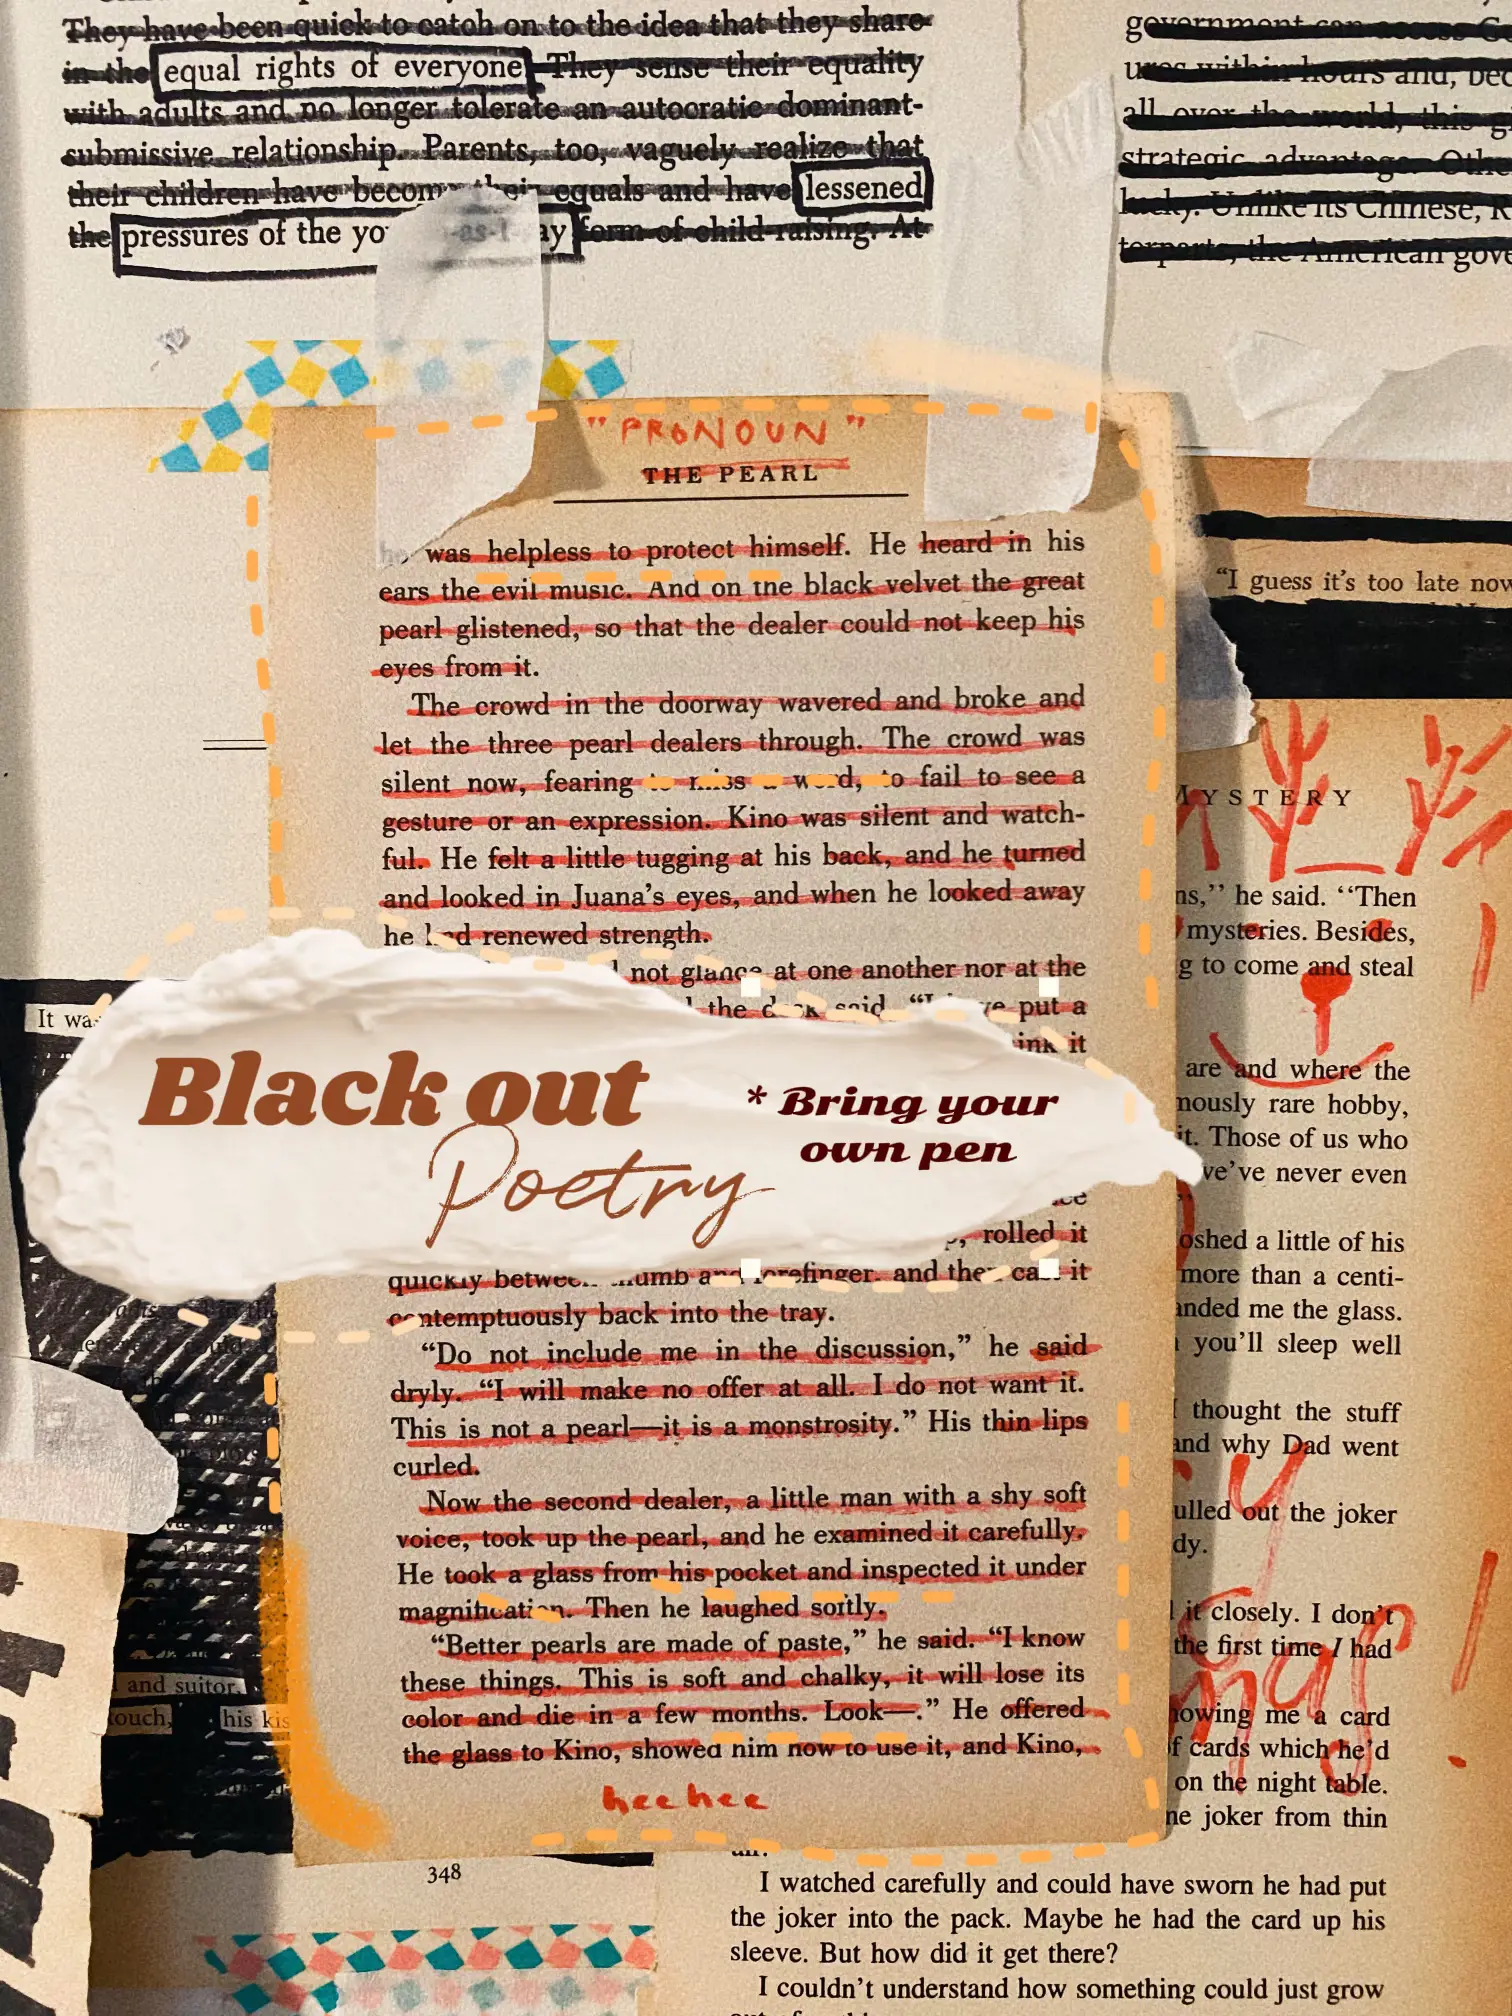 They have been quick to catch on to the idea that they share
in the equal rights of everyone. They sense their equality
with adults and no longer tolerate an autocratic dominant-
submissive relationship. Parents, too, vaguely realize that
their children have become their equals and have lessened
the pressures of the yo -as-I ay form of child-raising. At
government can access
within hours and,
all over the world, this
strategic advantage.
lucky. Unlike its Chinese,
the American
"PRONOUN"
THE PEARL
he was helpless to protect himself. He heard in his
ears the evil music. And on the black velvet the great
pearl glistened, so that the dealer could not keep his
eyes from it.
The crowd in the doorway wavered and broke and
let the three pearl dealers through. The crowd was
silent now, fearing to miss a word, to fail to see a
gesture or an expression. Kino was silent and watch-
ful. He felt a little tugging at his back, and he turned
and looked in Juana's eyes, and when he looked away
he had renewed strength.
not glance at one another nor at the
the desk said, "I have put a
it
Black out
Poetry
* Bring your
own pen
rolled it
quickly between thumb and forefinger, and then cast it
contemptuously back into the tray.
"Do not include me in the discussion," he said
dryly. "I will make no offer at all. I do not want it.
This is not a pearl—it is a monstrosity." His thin lips
curled.
Now the second dealer, a little man with a shy soft
voice, took up the pearl, and he examined it carefully.
He took a glass from his pocket and inspected it under
magnification. Then he laughed softly.
"Better pearls are made of paste," he said. "I know
these things. This is soft and chalky, it will lose its
color and die in a few months. Look—." He offered
the glass to Kino, showed him how to use it, and Kino,
hee hee
"I guess it's too late now
MYSTERY
he said. "Then
mysteries. Besides,
to come and steal
are and where the
rare hobby,
it. Those of us who
we've never even
a little of his
more than a centi-
me the glass.
you'll sleep well
I thought the stuff
and why Dad went
out the joker
it closely. I don't
the first time I had
me a card
of cards which he'd
on the night table.
joker from thin
I watched carefully and could have sworn he had put
the joker into the pack. Maybe he had the card up his
sleeve. But how did it get there?
I couldn't understand how something could just grow
It was
and suitor,
touch, his
348